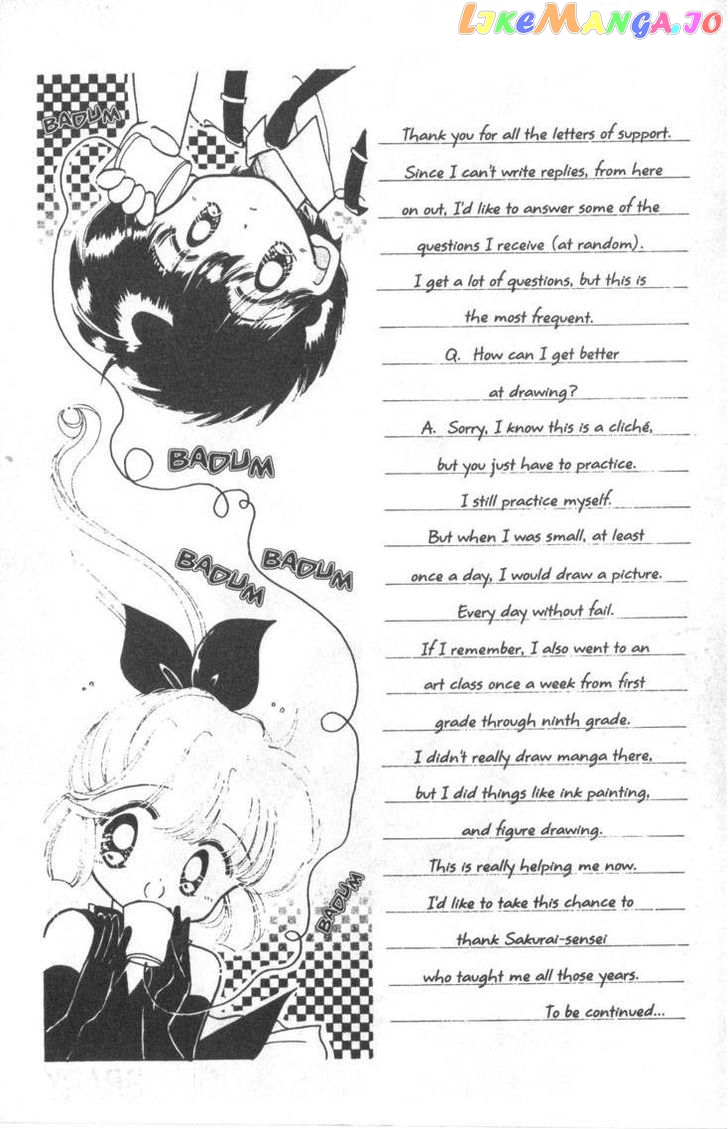 LIKEMANGA.IO
BADUM
Thank you for all the letters of support.
Since I can't write replies, from here
on out, I'd like to answer some of the
questions I receive (at random).
I get a lot of questions, but this is
the most frequent.
Q. How can I get better
at drawing?
A. Sorry, I know this is a cliché,
but you just have to practice.
I still practice myself.
But when I was small, at least
once a day, I would draw a picture.
Every day without fail.
If I remember, I also went to an
art class once a week from first
grade through ninth grade.
I didn't really draw manga there,
but I did things like ink painting,
and figure drawing.
This is really helping me now.
I'd like to take this chance to
thank Sakurai-sensei
who taught me all those years.
To be continued...
BADUM
BADUM
BADUM
BADUM